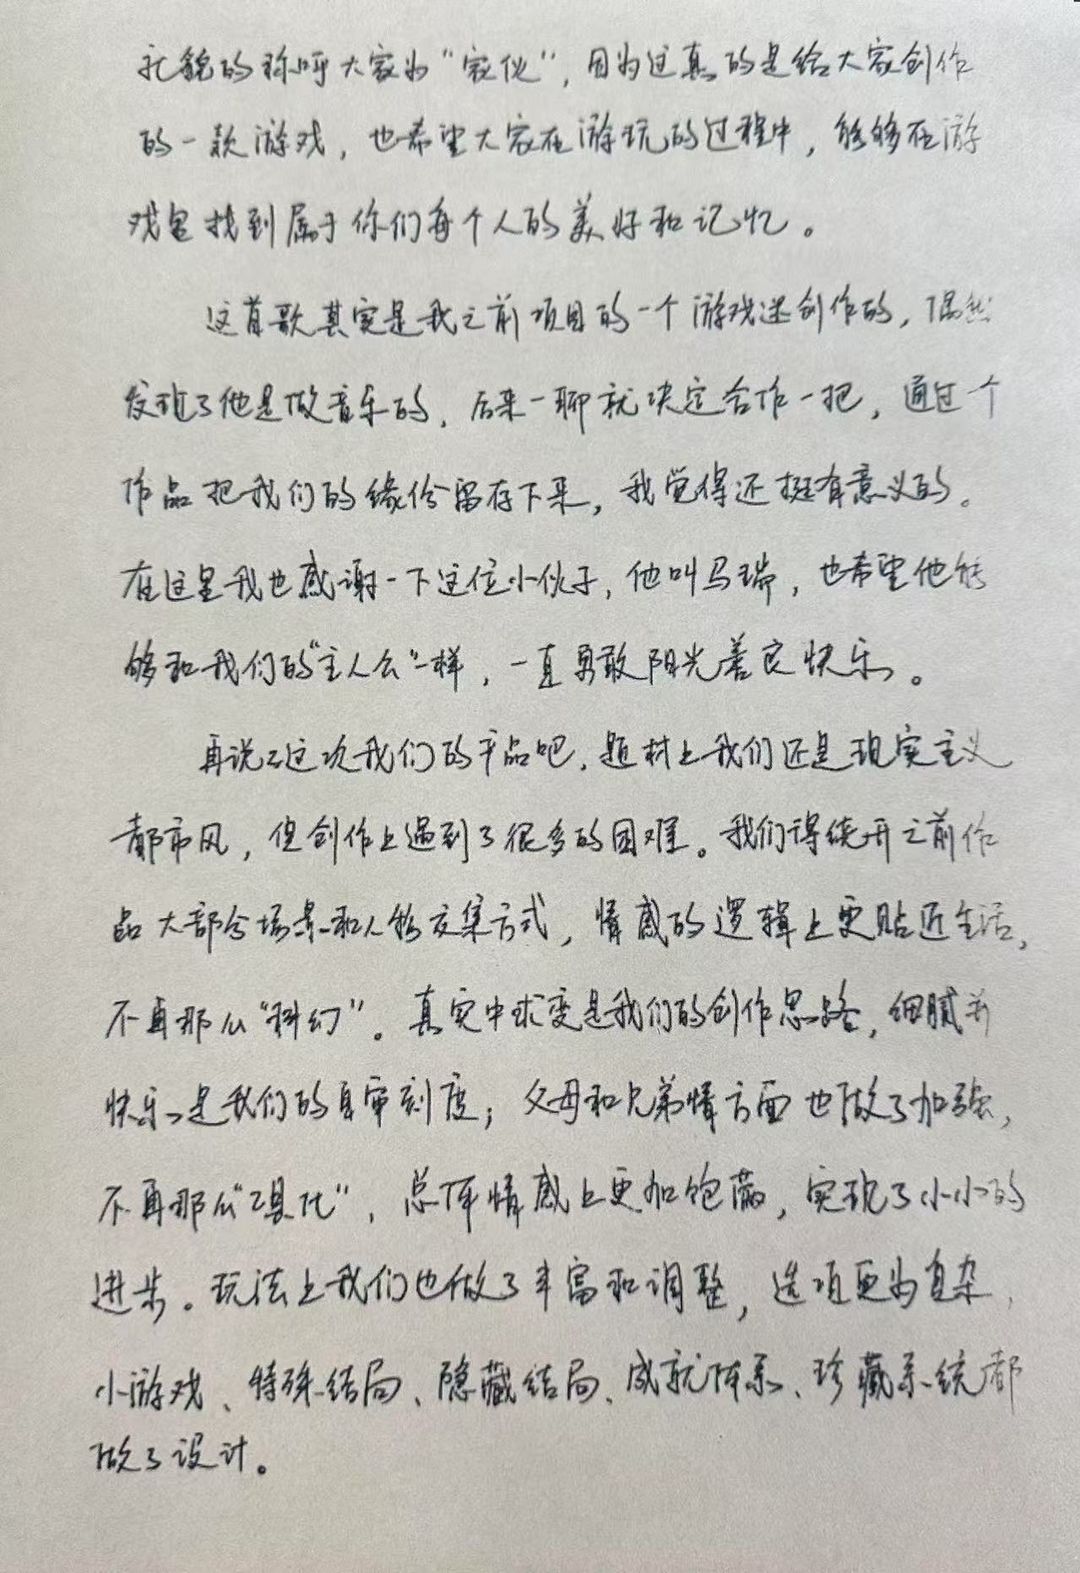 礼貌的称呼大家为“家伙”，因为这真的是给大家创作
的一款游戏，也希望大家在游玩的过程中，能够在游
戏里找到属于你们每个人的美好和记忆。
这首歌其实是我之前项目的一个游戏迷创作的，偶然
发现了他是做音乐的，后来一聊就决定合作一把，通过个
作品把我们的缘份留存下来，我觉得还挺有意义的。
在这里我也感谢一下这位小伙子，他叫马瑞，也希望他能
够和我们的“主人公”一样，一直勇敢阳光善良快乐。
再说说这次我们的产品吧，题材上我们还是现实主义
都市风，但创作上遇到了很多的困难。我们得绕开之前作
品大部分场景和人物交集方式，情感的逻辑上更贴近生活，
不再那么“科幻”。真实中求变是我们的创作思路，细腻并
快乐是我们的自审刻度；父母和兄弟情方面也做了加强，
不再那么“工具化”，总体情感上更加饱满，实现了小小的
进步。玩法上我们也做了丰富和调整，选项更为复杂，
小游戏、特殊结局、隐藏结局、成就体系、珍藏系统都
做了设计。